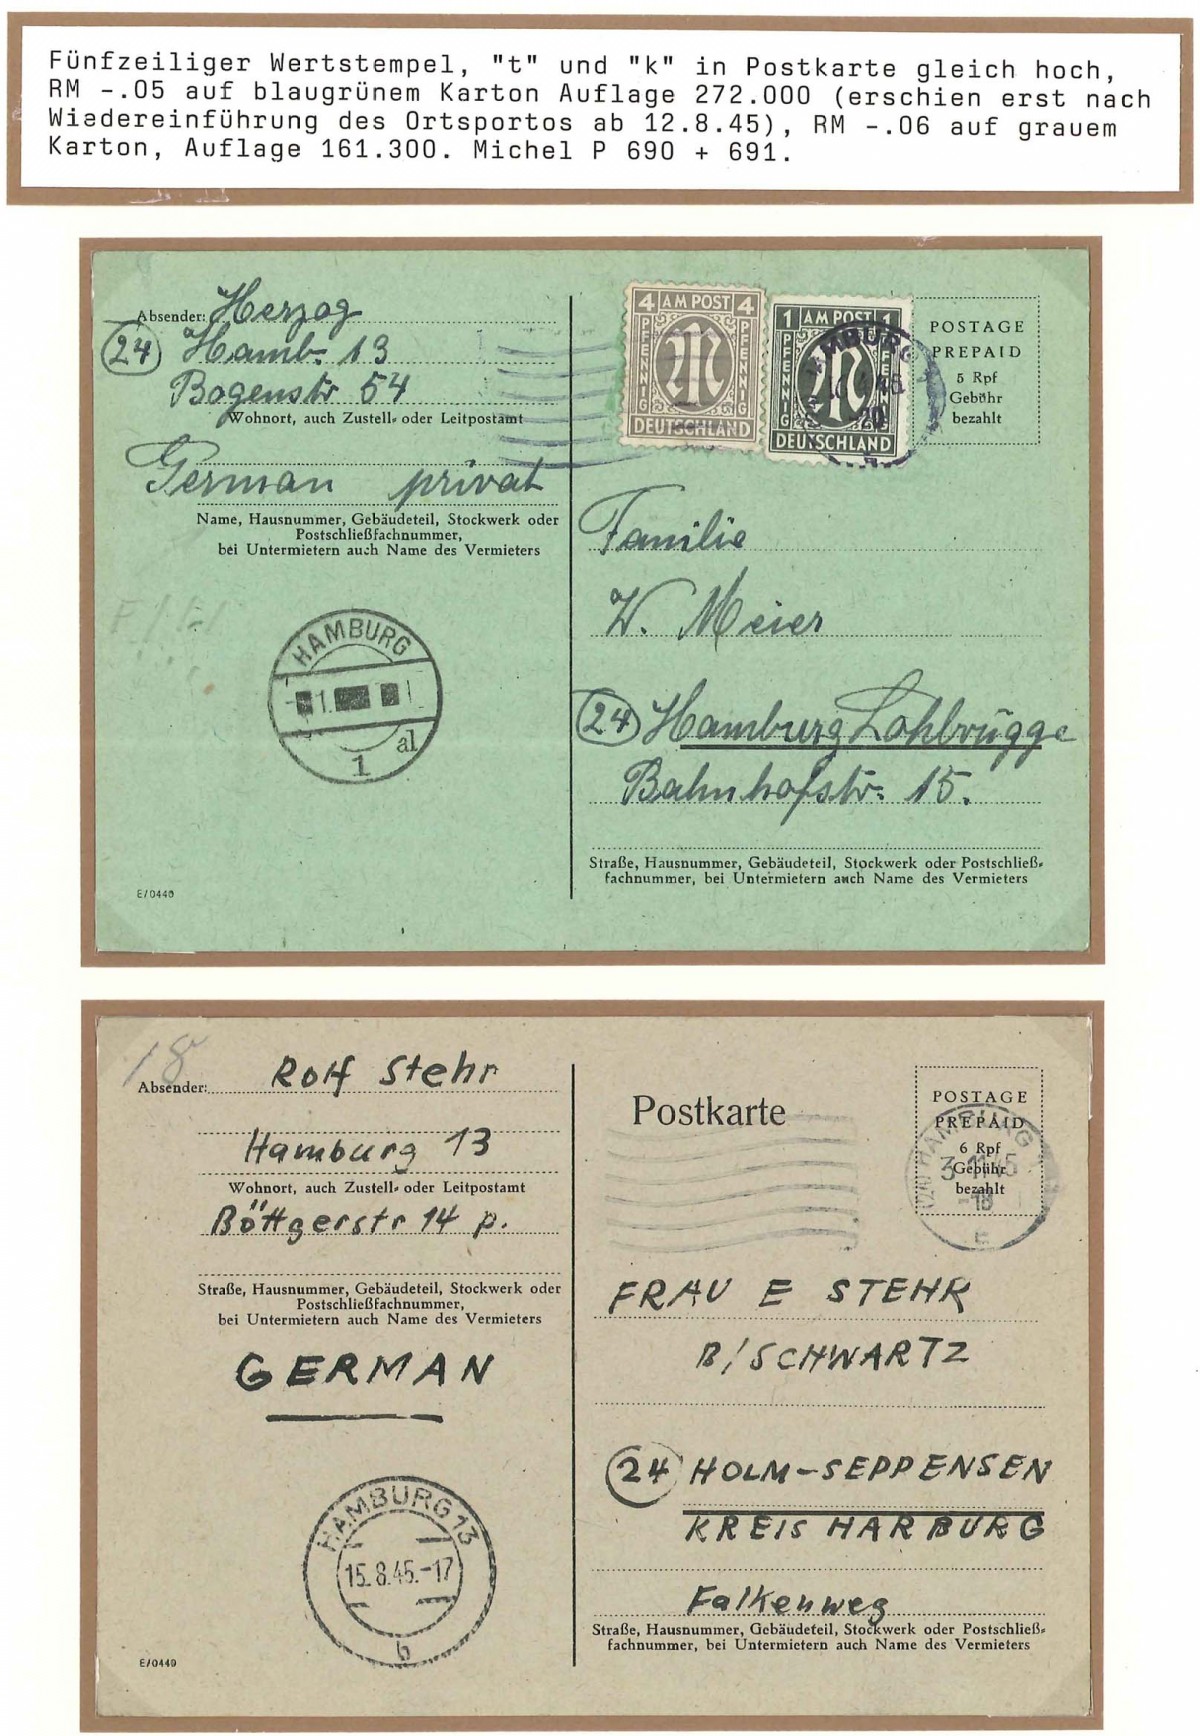 Fünfzeiliger Wertstempel, "t" und "k" in Postkarte gleich hoch,
RM -.05 auf blaugrünem Karton Auflage 272.000 (erschien erst nach
Wiedereinführung des Ortsportos ab 12.8.45), RM -.06 auf grauem
Karton, Auflage 161.300. Michel P 690 + 691.
Absender: Herzog
24 Hamb. 13
Bogenstr 54
Wohnort, auch Zustell- oder Leitpostamt
German privat
Name, Hausnummer, Gebäudeteil, Stockwerk oder
Postschließfachnummer,
bei Untermietern auch Name des Vermieters
HAMBURG
1
al
1
E/0440
4 AM POST 4
PFENNIG PFENNIG
DEUTSCHLAND
1 AM POST 1
PFENNIG PFENNIG
DEUTSCHLAND
HAMBURG
-20
POSTAGE
PREPAID
5 Rpf
Gebühr
bezahlt
Familie
W. Meier
24 Hamburg Lohbrügge
Bahnhofstr. 15.
Straße, Hausnummer, Gebäudeteil, Stockwerk oder Postschließ-
fachnummer, bei Untermietern auch Name des Vermieters
Absender: Rolf Stehr
Hamburg 13
Wohnort, auch Zustell- oder Leitpostamt
Böttgerstr 14 p.
Straße, Hausnummer, Gebäudeteil, Stockwerk oder
Postschließfachnummer,
bei Untermietern auch Name des Vermieters
GERMAN
HAMBURG 13
15.8.45.-17
b
E/0440
Postkarte
POSTAGE
PREPAID
6 Rpf
Gebühr
bezahlt
(24) HAMBURG
3.11.45
-18
FRAU E STEHR
B/SCHWARTZ
24 HOLM-SEPPENSEN
KREIS HARBURG
Falkenweg
Straße, Hausnummer, Gebäudeteil, Stockwerk oder Postschließ-
fachnummer, bei Untermietern auch Name des Vermieters